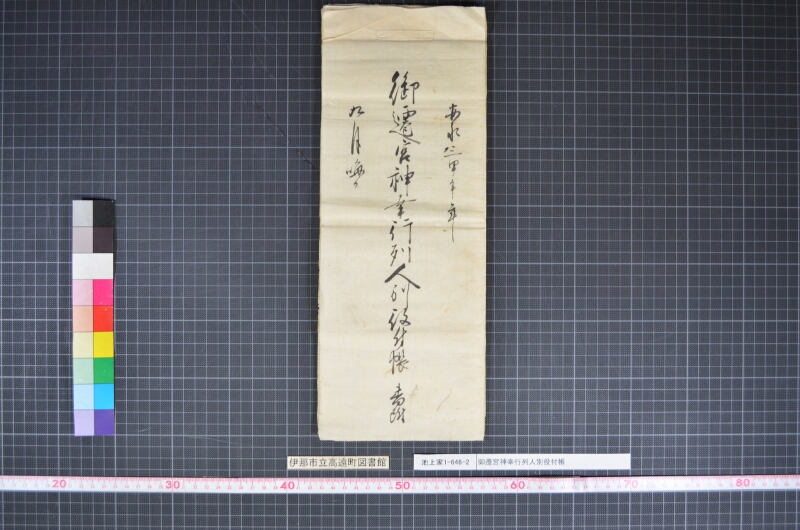 安永三甲午年
御遷宮神幸行列人別役付帳
九月晦日
伊那市立高遠町図書館
池上家1-646-2 御遷宮神幸行列人別役付帳
20 30 40 50 60 70 80